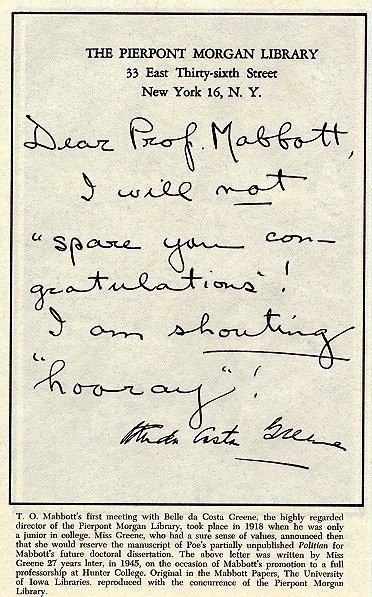 THE PIERPONT MORGAN LIBRARY
33 East Thirty-sixth Street
New York 16, N. Y.
Dear Prof. Mabbott,
I will not
"spare you con-
gratulations"!
I am shouting
"hooray"!
da Costa Greene
T. O. Mabbott's first meeting with Belle da Costa Greene, the highly regarded
director of the Pierpont Morgan Library, took place in 1918 when he was only
a junior in college. Miss Greene, who had a sure sense of values, announced then
that she would reserve the manuscript of Poe's partially unpublished Politian for
Mabbott's future doctoral dissertation. The above letter was written by Miss
Greene 27 years later, in 1945, on the occasion of Mabbott's promotion to a full
professorship at Hunter College. Original in the Mabbott Papers, The University
of Iowa Libraries, reproduced with the concurrence of the Pierpont Morgan
Library.